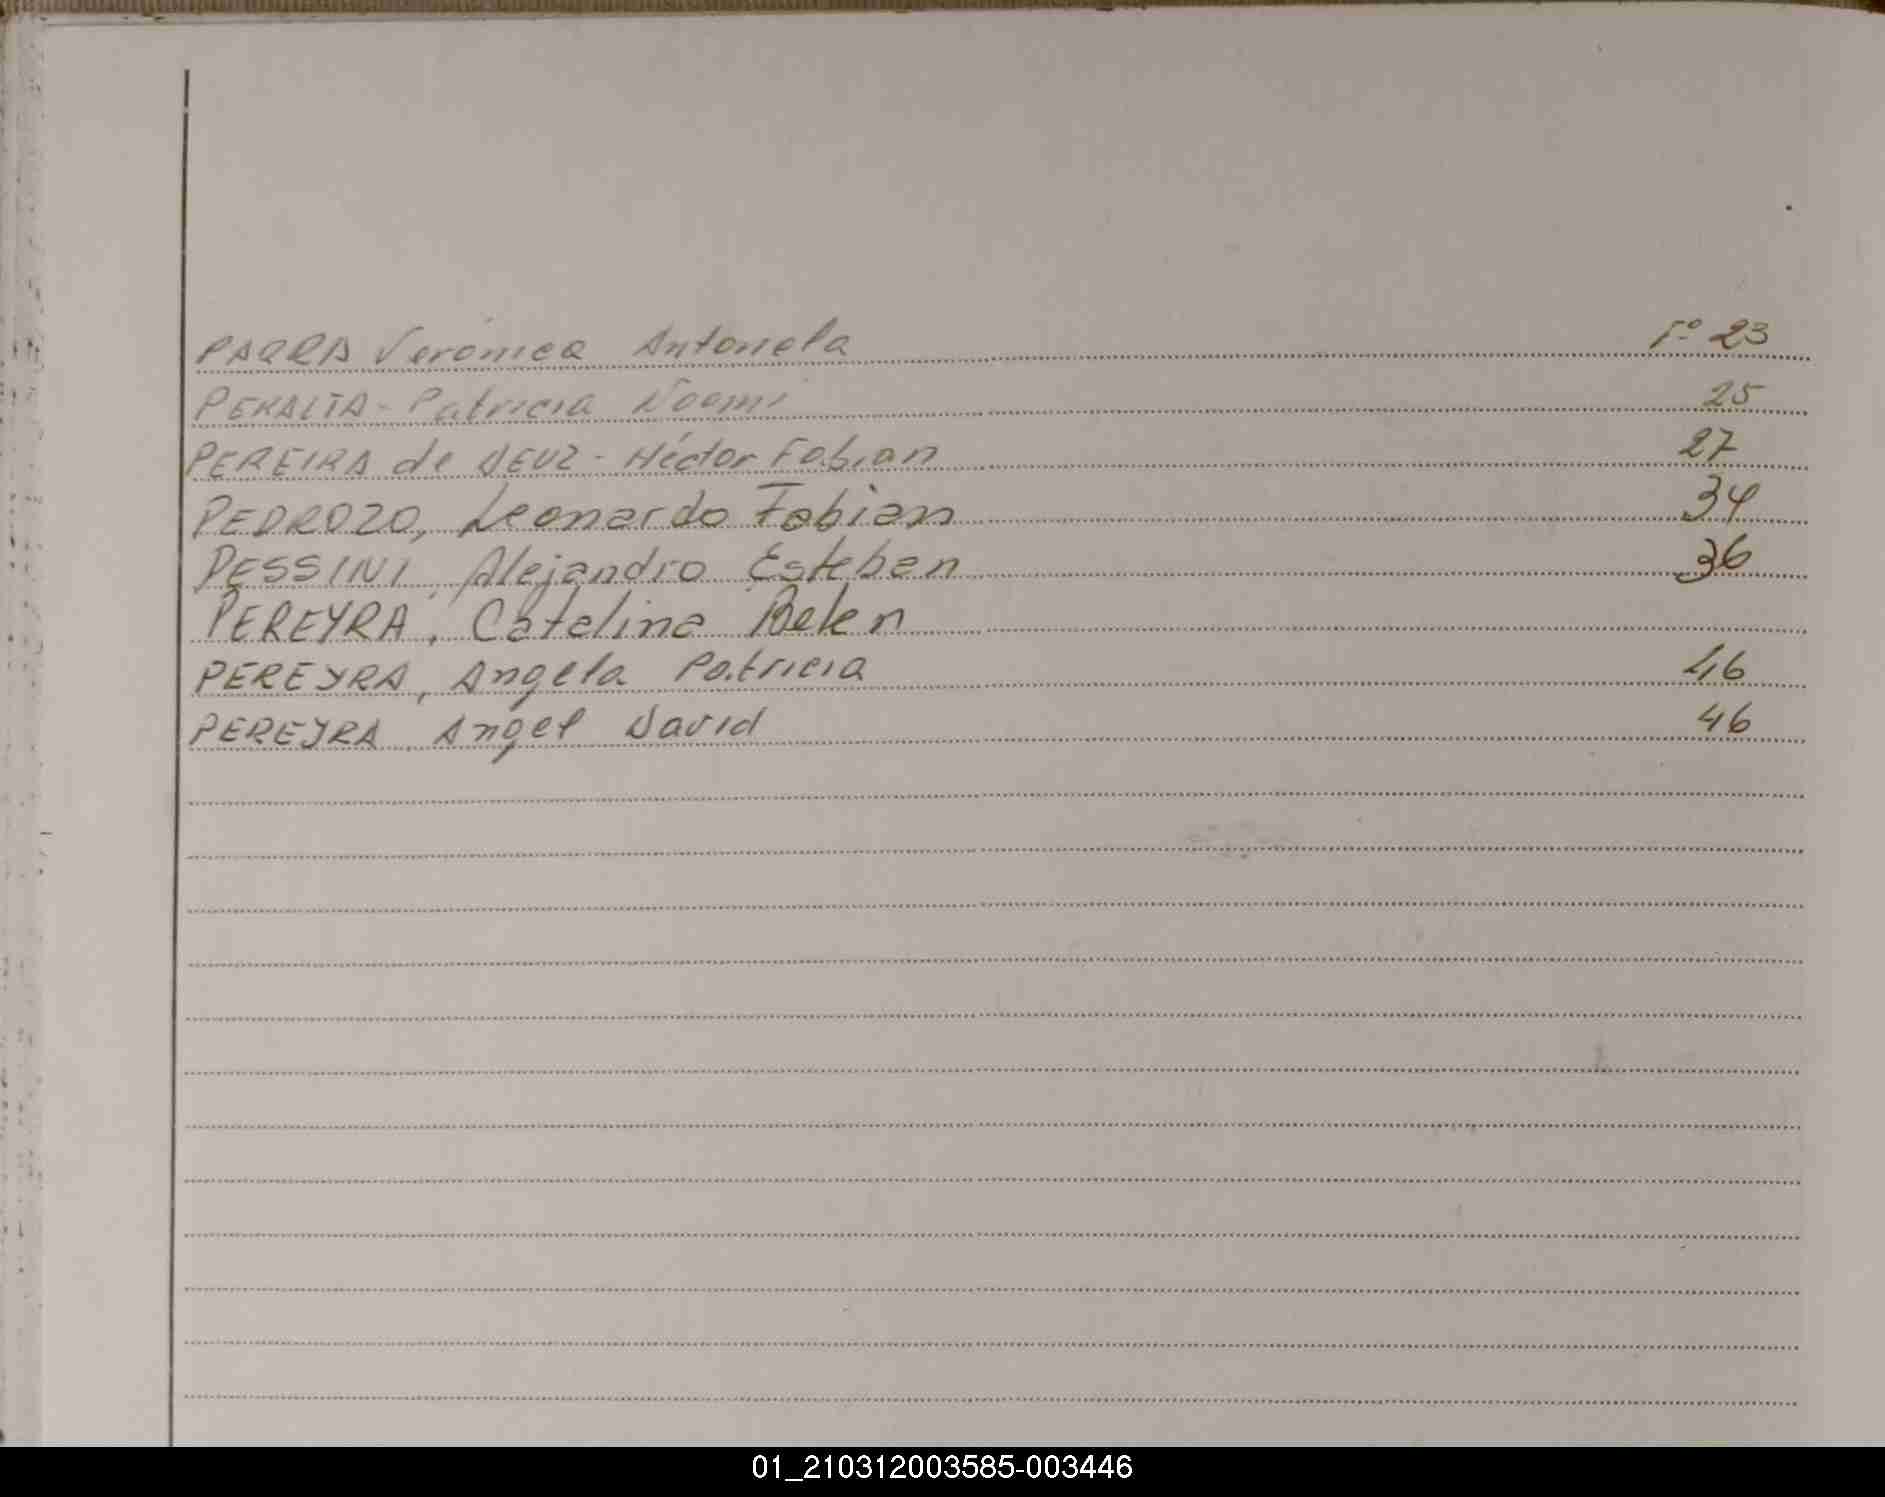 PARRA Veronica Antonela Fº 23
PERALTA - Patricia Noemi 25
PEREIRA de DEUZ - Héctor Fabian 27
PEDROZO, Leonardo Fabian 34
PESSINI, Alejandro Esteban 36
PEREYRA, Catalina Belen
PEREYRA, Angela Patricia 46
PEREYRA Angel David 46
01_210312003585-003446